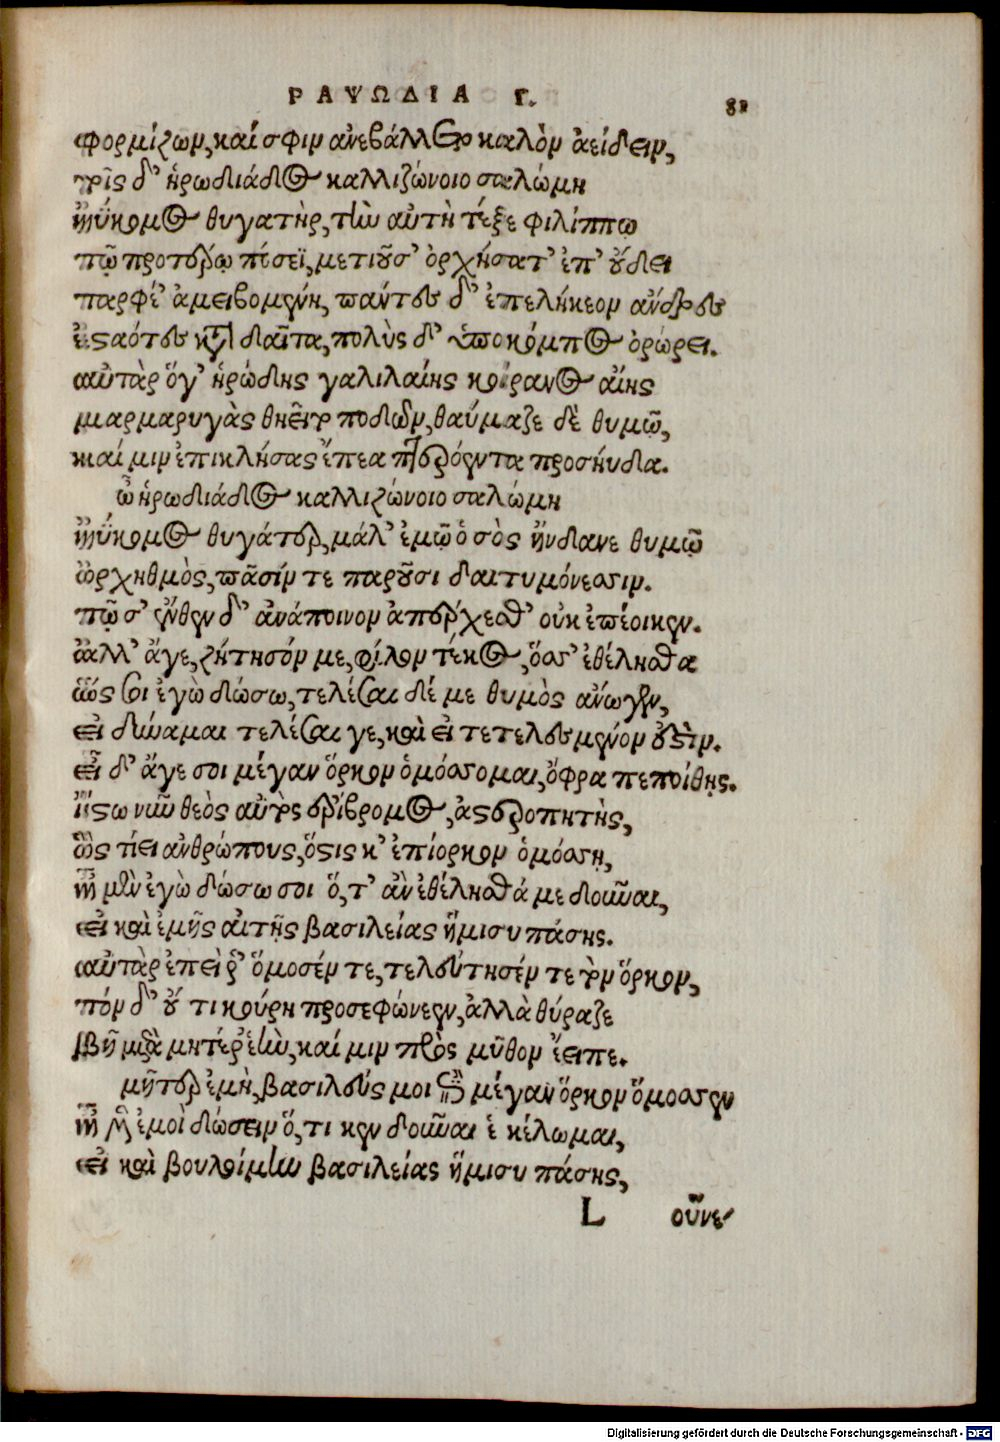 ΡΑΨΩΔΙΑ Γ. 81
φορμίζων, καί σφιν ἀνεβάλλετο καλὸν ἀείδειν,
τρὶς δ' ἡρωδιάδος καλλιζώνοιο σαλώμη
ἠΰκομος θυγατὴρ, τὴν αὐτὴ τέξε φιλίππω
πῷ προτέρῳ πόσεϊ, μετιοῦσ' ὀρχήσατ' ἐπ' οὔδει
ταρφέ' ἀμειβομένη, πάντες δ' ἐπελήκεον ἄνδρες
ἑσταότες κατὰ δαῖτα, πολὺς δ' ὑπὸ κόμπος ὀρώρει.
αὐτὰρ ὅγ' ἡρώδης γαλιλαίης κοίρανος αἴης
μαρμαρυγὰς θηεῖτο ποδῶν, θαύμαζε δὲ θυμῷ,
καί μιν ἐπικλήσας ἔπεα πτερόεντα προσηύδα.
ὦ ἡρωδιάδος καλλιζώνοιο σαλώμη
ἠΰκομος θυγάτερ, μάλ' ἐμῷ ὁ σὸς ἥνδανε θυμῷ
ὠρχηθμὸς, πᾶσίν τε παροῦσι δαιτυμόνεσσιν.
πῷ σ' ἔνθεν δ' ἀνάποινον ἀπέρχεσθ' οὐκ ἐπέοικεν.
ἀλλ' ἄγε, ζήτησόν με, φίλον τέκος, ὅσσ' ἐθέλησθα
ὥς σοι ἐγὼ δώσω, τελέσαι δέ με θυμὸς ἄνωγεν,
εἰ δύναμαι τελέσαι γε, καὶ εἰ τετελεσμένον ἐστίν.
εἰ δ' ἄγε σοι μέγαν ὅρκον ὁμόσσομαι, ὄφρα πεποίθῃς.
ἴστω νῦν θεὸς αὐτὸς ἐρίβρομος, ἀστεροπητὴς,
ὃς τίει ἀνθρώπους, ὅστις κ' ἐπίορκον ὁμόσσῃ,
ἦ μὲν ἐγὼ δώσω σοι ὅ,τ' ἂν ἐθέλησθά με δοῦναι,
εἰ καὶ ἐμῆς αὐτῆς βασιλείας ἥμισυ πάσης.
αὐτὰρ ἐπεί ῥ' ὅμοσέν τε, τελεύτησέν τε τὸν ὅρκον,
τόν δ' οὔ τι κούρη προσεφώνεεν, ἀλλὰ θύραζε
βῆ μετὰ μητέρ' ἑὴν, καί μιν πρὸς μῦθον ἔειπε.
μῆτερ ἐμὴ, βασιλεύς μοι μέγαν ὅρκον ὅμοσσεν
ἦ μὲν ἐμοὶ δώσειν ὅ,τι κεν δοῦναι ἑ κέλωμαι,
εἰ καὶ βουλοίμην βασιλείας ἥμισυ πάσης,
L οὔνε
Digitalisierung gefördert durch die Deutsche Forschungsgemeinschaft - DFG